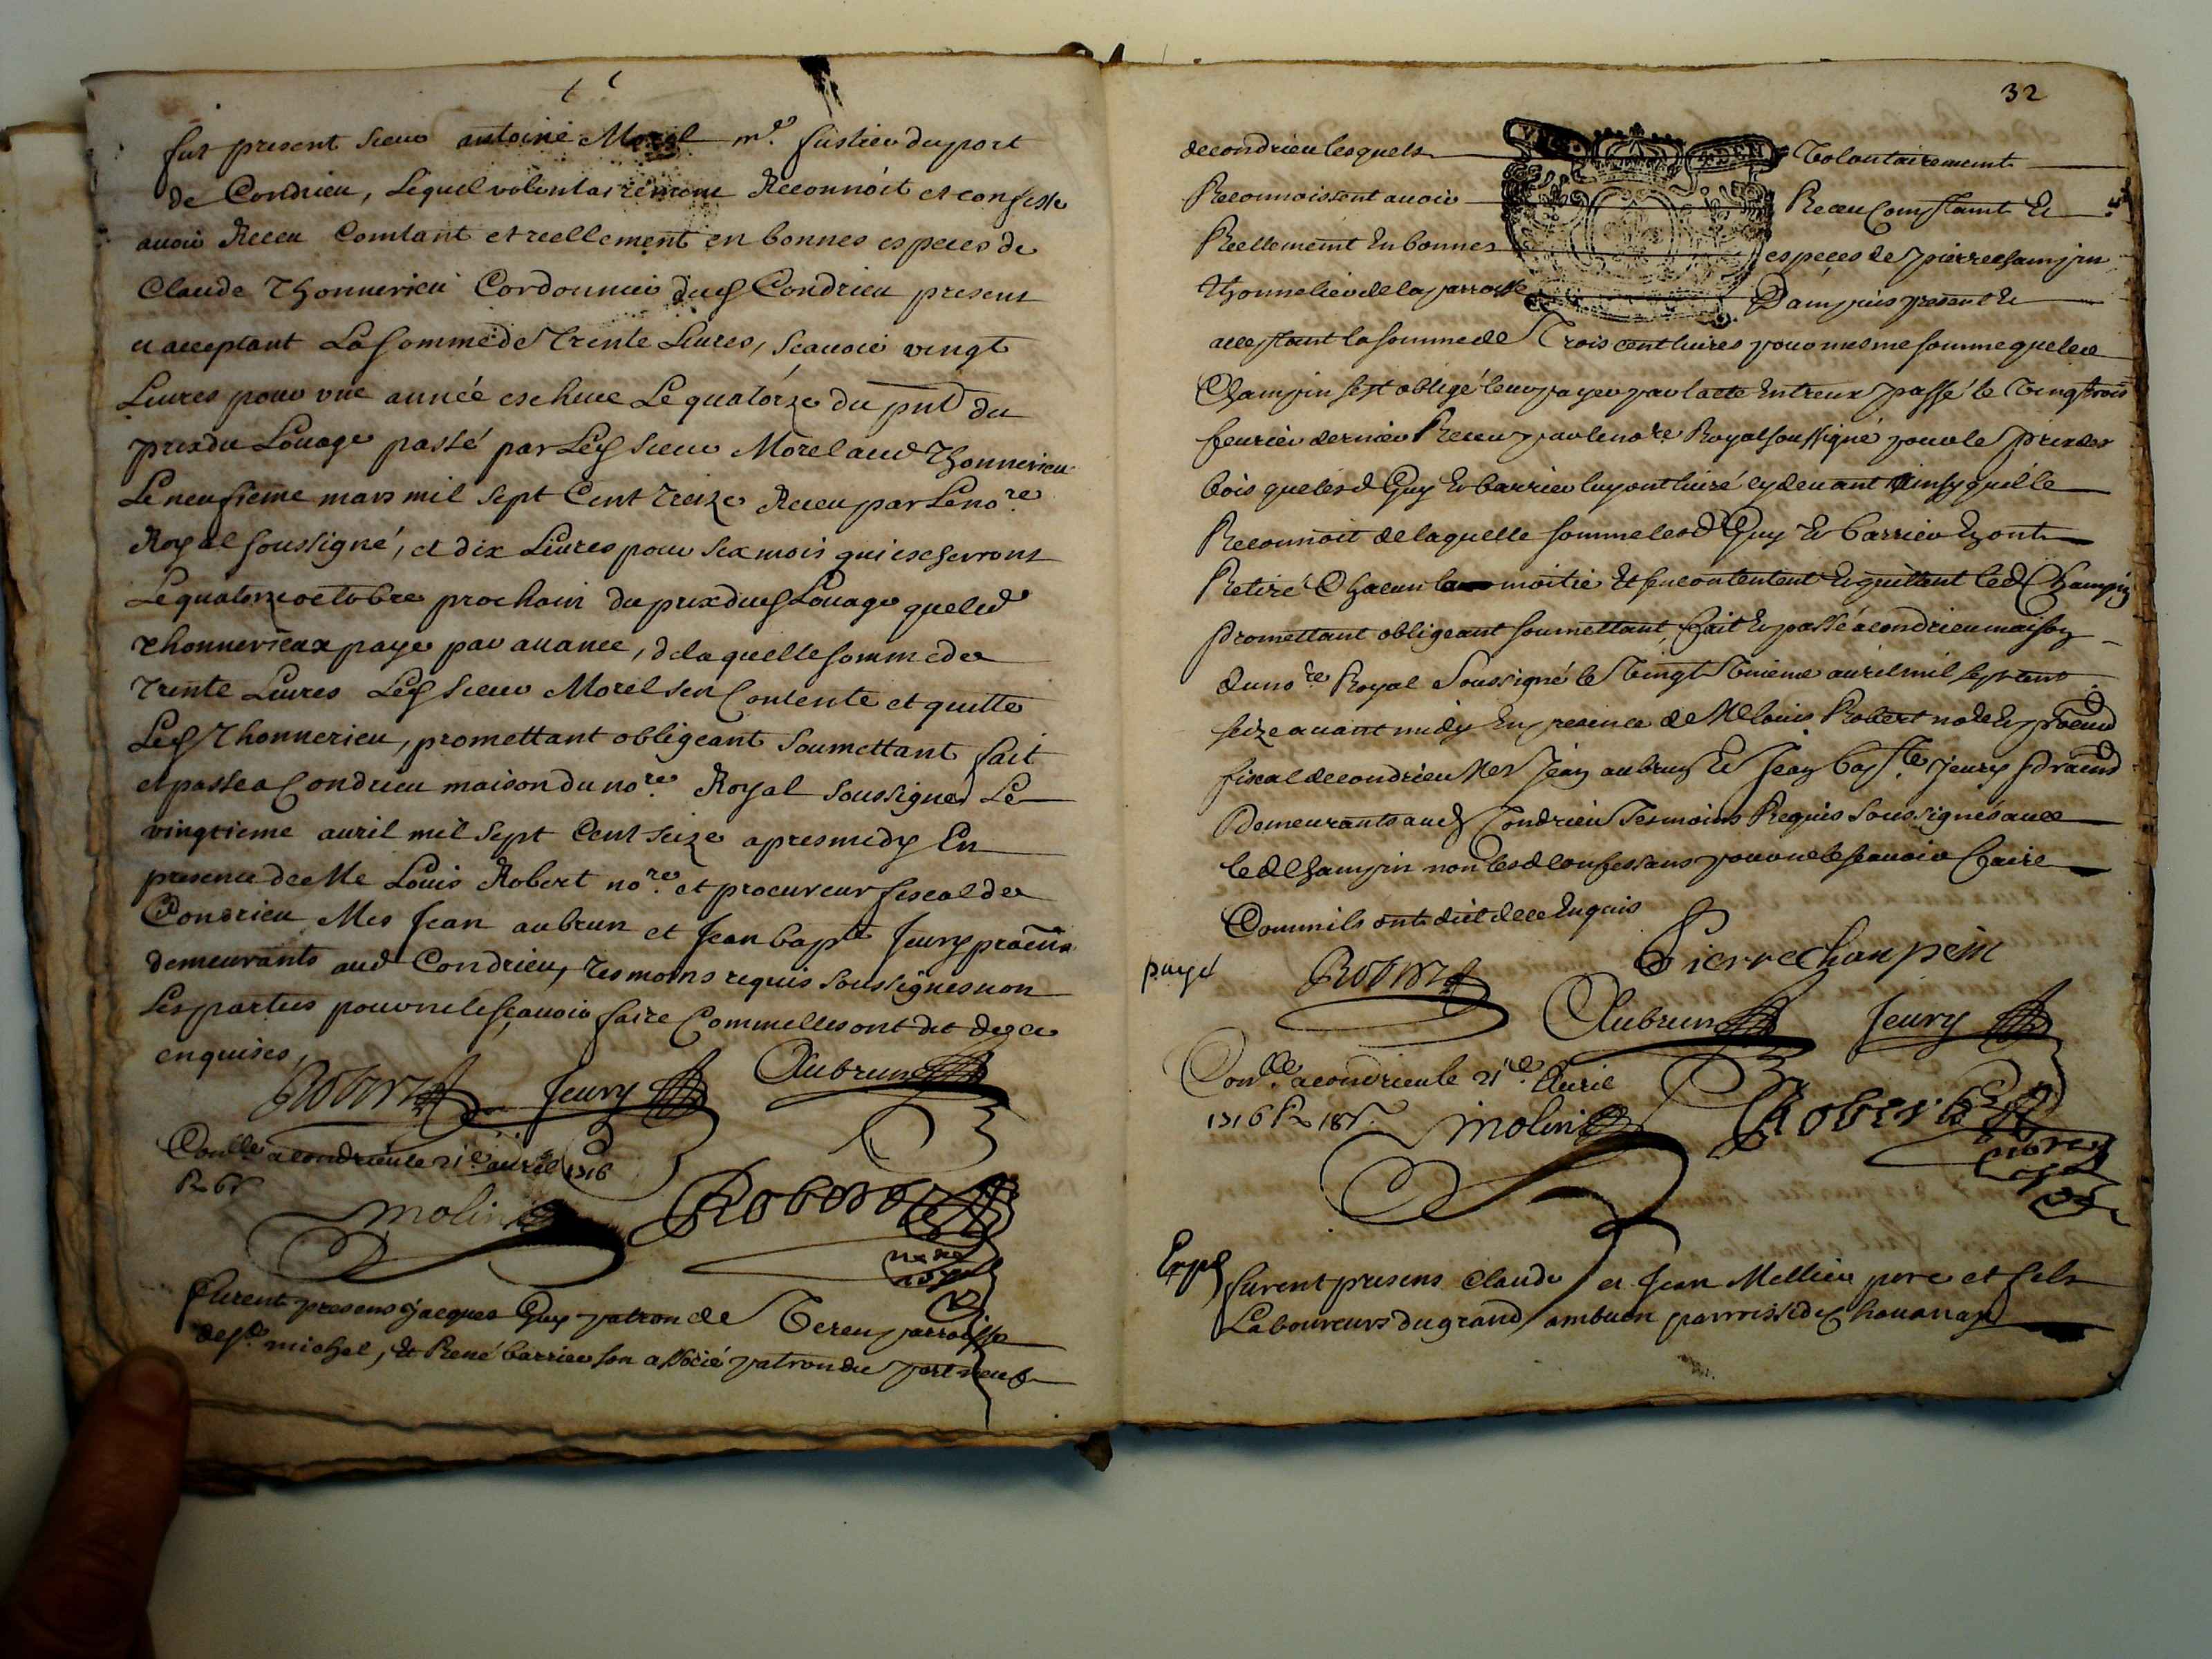 fut present sieur antoine Morel m.e fustier du port
de Condrieu, Lequel volontairement Reconnoit et confesse
avoir Receu Comtant et reellement en bonnes especes de
Claude Thonnerieu Cordonnier dud Condrieu present
et acceptant La somme de Trente Livres, scavoir vingt
Livres pour une année escheue Le quatorze du pnt du
prix du Louage passé par Led sieur Morel aud Thonnerieu
Le neufieme mars mil sept Cent treize Receu par Le no.re
Royal soussigné, et dix Livres pour six mois qui escherront
Le quatorze octobre prochain du prix dud Louage que led
Thonnerieu a paye par avance, de laquelle somme de
trente Livres Led sieur Morel sen Contente et quitte
Led Thonnerieu, promettant obligeant soumettant fait
et passe a Condrieu maison du no.re Royal soussigned Le
vingtieme avril mil sept Cent seize apres midy En
presence de Me Louis Robert no.re et procureur fiscal de
Condrieu Mes Jean aubrun et Jean bapte Jeury
demeurants aud Condrieu, tesmoins requis soussignes non
Les parties pour ne le scavoir faire Comme elles ont dit de ce
enquises,
Robert Jeury Aubrun
Con.lle a condrieu le 21e avril 1716
R 6s
Molin Robert
no.re
royal
furent presens Jacques Guy patron de Vereu parroisse
de st. michel, et René barrieu son associé patron du port neuf
32
de condrieu lesquels Volontairement
Reconnoissent avoir Receu Comptant Et
Reellement En bonnes especes de pierre champin
thonnelier de la parroisse Dampuis present Et
acceptant la somme de Trois cent livres pour mesme somme que led
Champin sest obligé leur payer par lacte Entreux passé le Vingt trois
fevrier dernier Receu par le no.re Royal soussigné pour le prix des
bois que lesd Guy Et barrieu luy ont livré cy devant Ainsy quil le
Reconnoit de laquelle somme lesd Guy Et barrieu En ont
Retiré Chacun la moitié Et sen contentent Et quittent led Champin
Promettant obligeant soumettant, fait Et passé a condrieu maison
du no.re Royal Soussigné le Vingt Unieme avril mil sept cent
seize avant midy En presence de Me Louis Robert no.re Et
fiscal de condrieu Mes Jean aubrun Et Jean bap.te Jeury
demeurants aud Condrieu Tesmoins Requis Soussignés avec
led Champin non lesd confessans pour ne le scavoir faire
Comm ils ont dit de ce Enquis
payé
Robert Pierre Chanpein
Aubrun Jeury
Con.lle a condrieu le 21e. Avril
1716 R 18s
Molin Robert
no.re
Expd
furent presens Claude et Jean Mellier pere et fils
Laboureurs du grand ambuen parroisse de chavanay